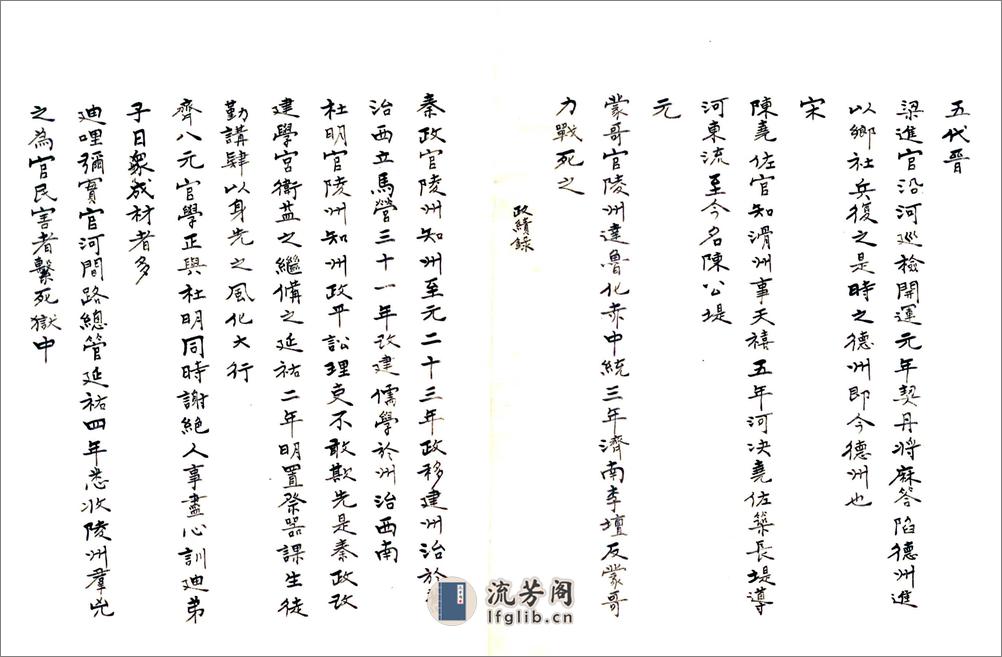 五代晉
梁進官沿河巡檢開運元年契丹將麻答陷德洲進
以鄉社兵復之是時之德洲即今德洲也
宋
陳堯佐官知滑洲事天禧五年河决堯佐築長堤導
河東流至今名陳公堤
元
蒙哥官陵洲達魯化赤中統三年濟南李壇反蒙哥
力戰死之
政績錄
秦政官陵洲知洲至元二十三年政移建洲治於
治西立馬營三十一年改建儒學於洲治西南
杜明官陵洲知洲政平訟理吏不敢欺先是秦政改
建學宮衛益之繼脩之延祐二年明置祭器課生徒
勤講肆以身先之風化大行
齊八元官學正與杜明同時謝絕人事盡心訓迪弟
子日衆成材者多
迪哩彌實官河間路總管延祐四年悉收陵洲羣兇
之為官民害者繫死獄中
流芳阁
lfglib.cn